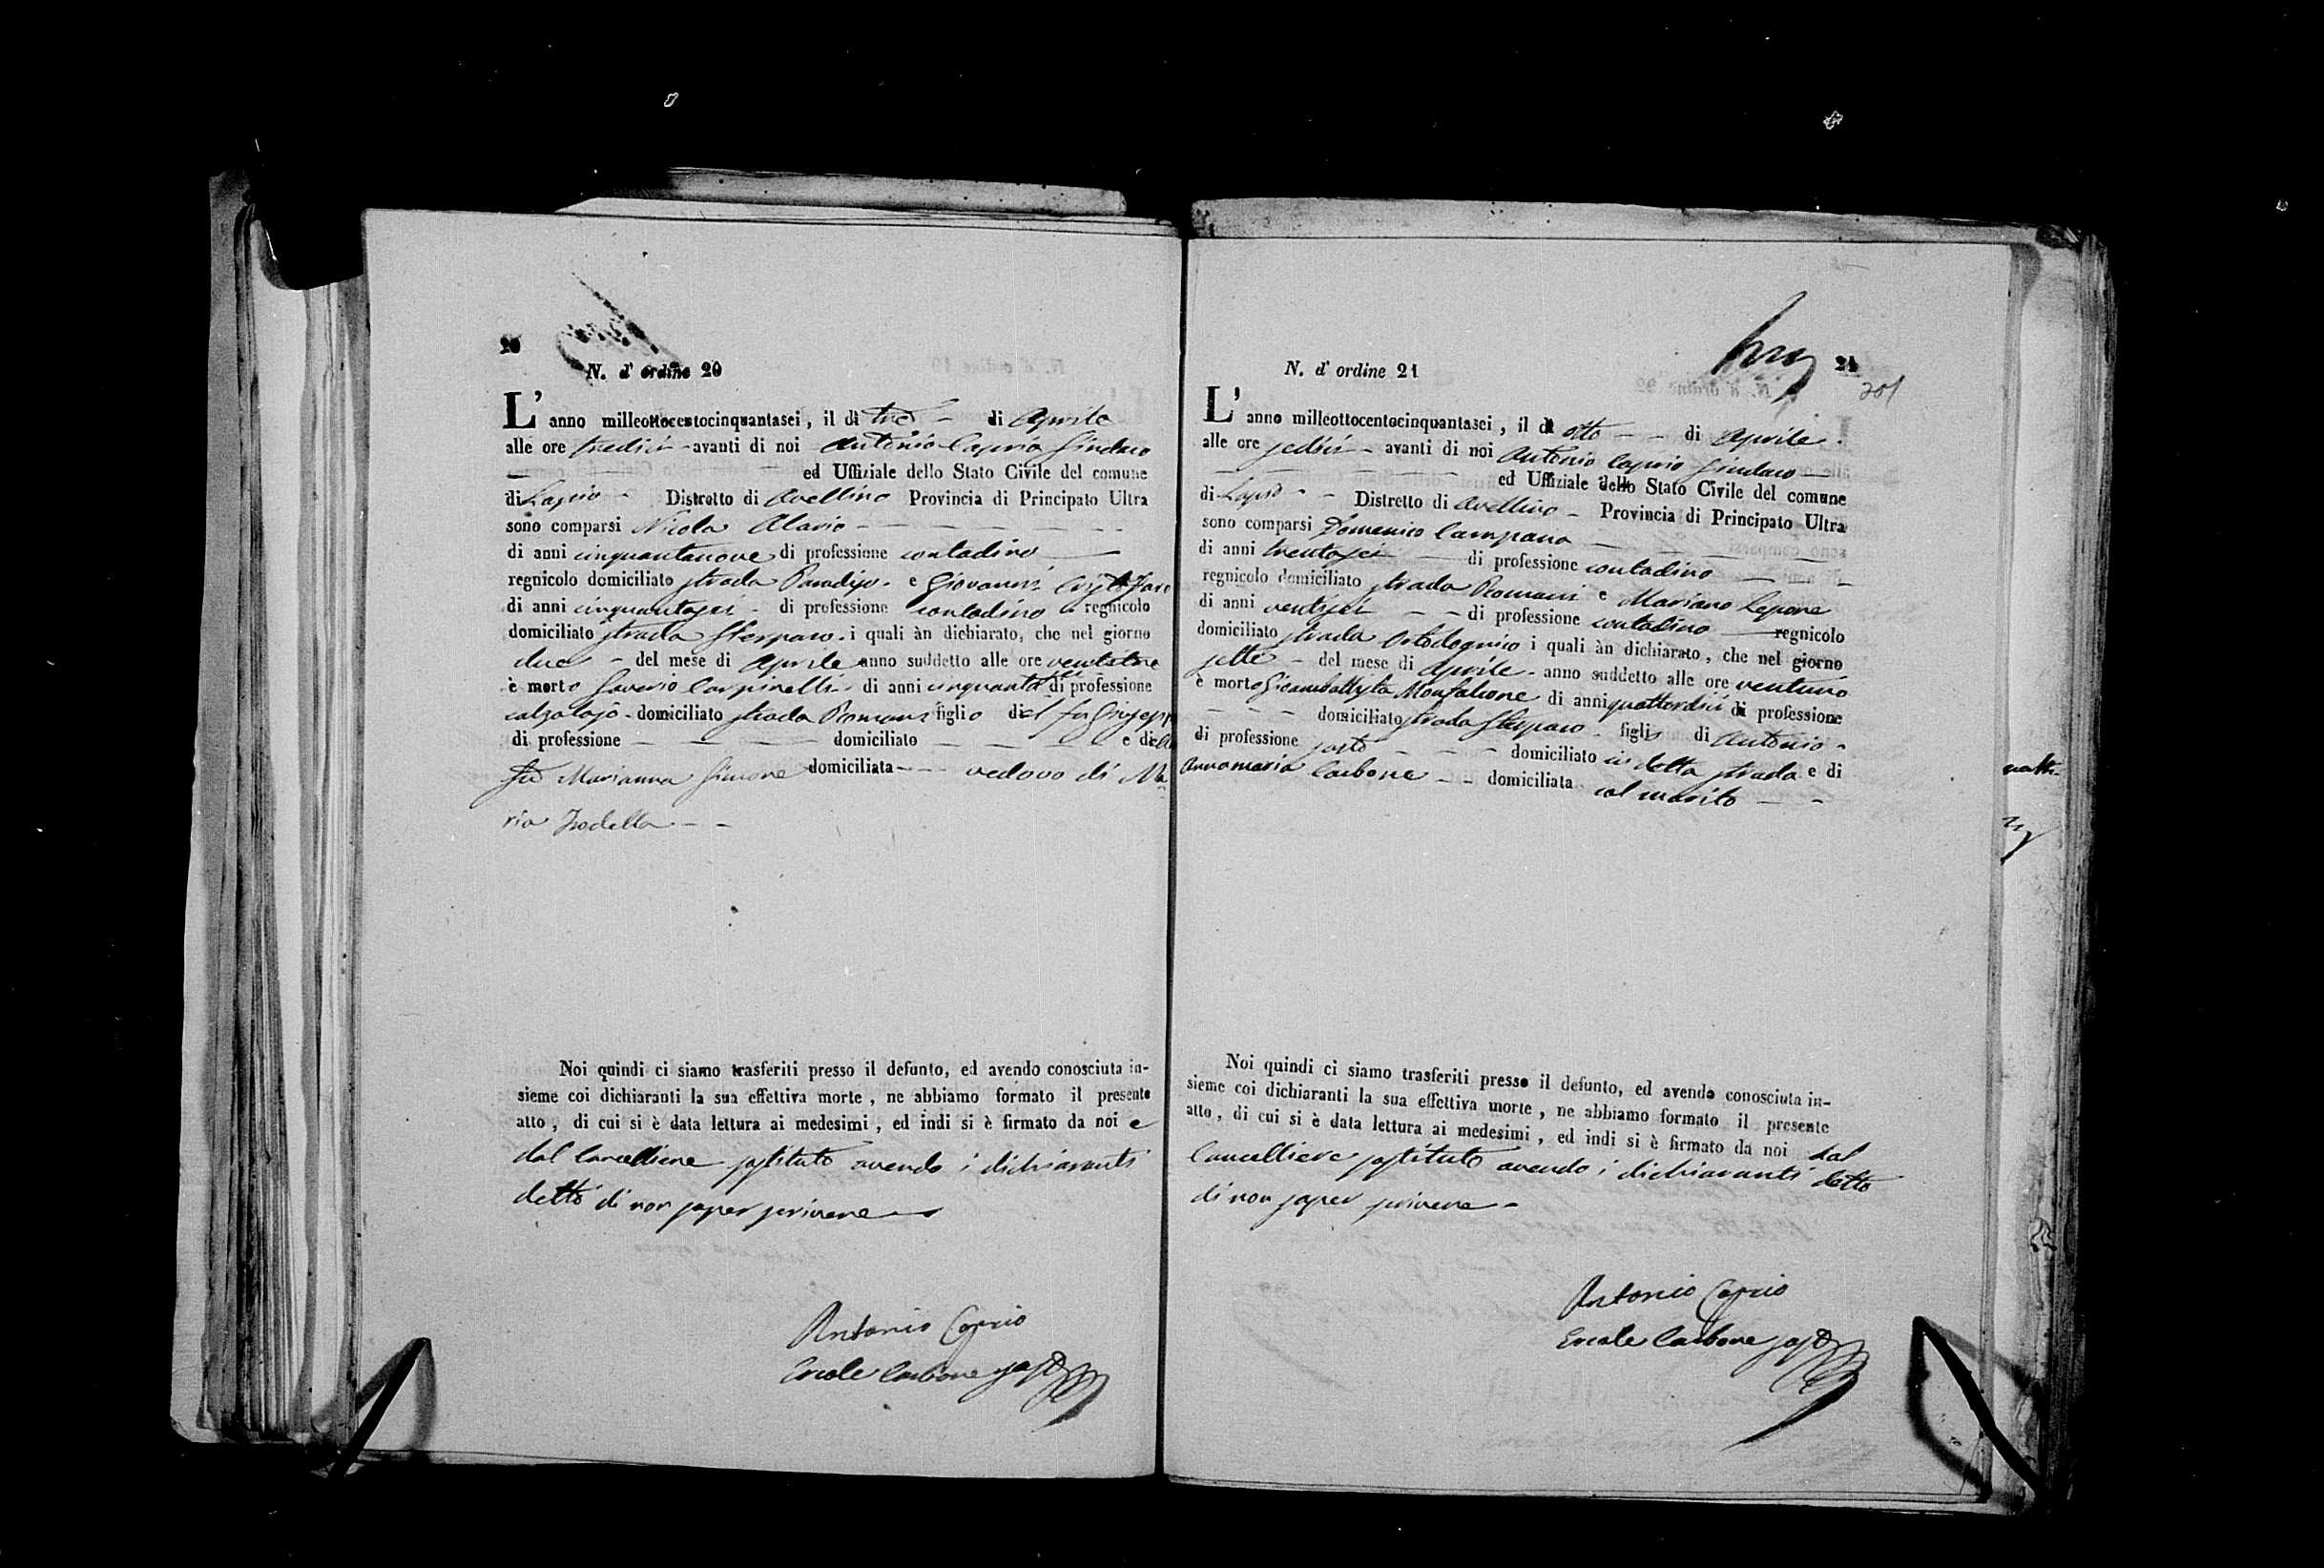 20
N. d' ordine 20
L' anno milleottocentocinquantasei, il dì tre di Aprile
alle ore tredici avanti di noi Antonio Caprio Sindaco
ed Uffiziale dello Stato Civile del comune
di Lapio Distretto di Avellino Provincia di Principato Ultra
sono comparsi Nicola
di anni cinquantanove di professione contadino
regnicolo domiciliato strada Paradiso e Giovanni
di anni cinquantasei di professione contadino regnicolo
domiciliato strada Sterparo i quali àn dichiarato, che nel giorno
due del mese di Aprile anno suddetto alle ore ventitre
è morto Saverio Carpinelli di anni cinquantasei di professione
calzolajo domiciliato strada Romani figlio del fu Giusepp
di professione domiciliato e di
fu Marianna Simone domiciliata vedovo di Ma
ria
Noi quindi ci siamo trasferiti presso il defunto, ed avendo conosciuta in-
sieme coi dichiaranti la sua effettiva morte, ne abbiamo formato il presente
atto, di cui si è data lettura ai medesimi, ed indi si è firmato da noi e
dal Cancelliere sostituto avendo i dichiaranti
detto di non saper scrivere
Antonio Caprio
Ercole Carbone sost
21
201
N. d' ordine 21
L' anno milleottocentocinquantasei, il dì otto di Aprile
alle ore sedici avanti di noi Antonio Caprio Sindaco
ed Uffiziale dello Stato Civile del comune
di Lapio Distretto di Avellino Provincia di Principato Ultra
sono comparsi Domenico Campana
di anni trentasei di professione contadino
regnicolo domiciliato strada Romani e Mariano Lepore
di anni ventisei di professione contadino regnicolo
domiciliato strada Ortodognico i quali àn dichiarato, che nel giorno
sette del mese di Aprile anno suddetto alle ore ventuno
è morto Giambattista Monfalcone di anni quattordici di professione
domiciliato strada Sterparo figlio di Antonio
di professione sarto domiciliato in detta strada e di
Annamaria Carbone domiciliata col marito
Noi quindi ci siamo trasferiti presso il defunto, ed avendo conosciuta in-
sieme coi dichiaranti la sua effettiva morte, ne abbiamo formato il presente
atto, di cui si è data lettura ai medesimi, ed indi si è firmato da noi dal
Cancelliere sostituto avendo i dichiaranti detto
di non saper scrivere
Antonio Caprio
Ercole Carbone sost